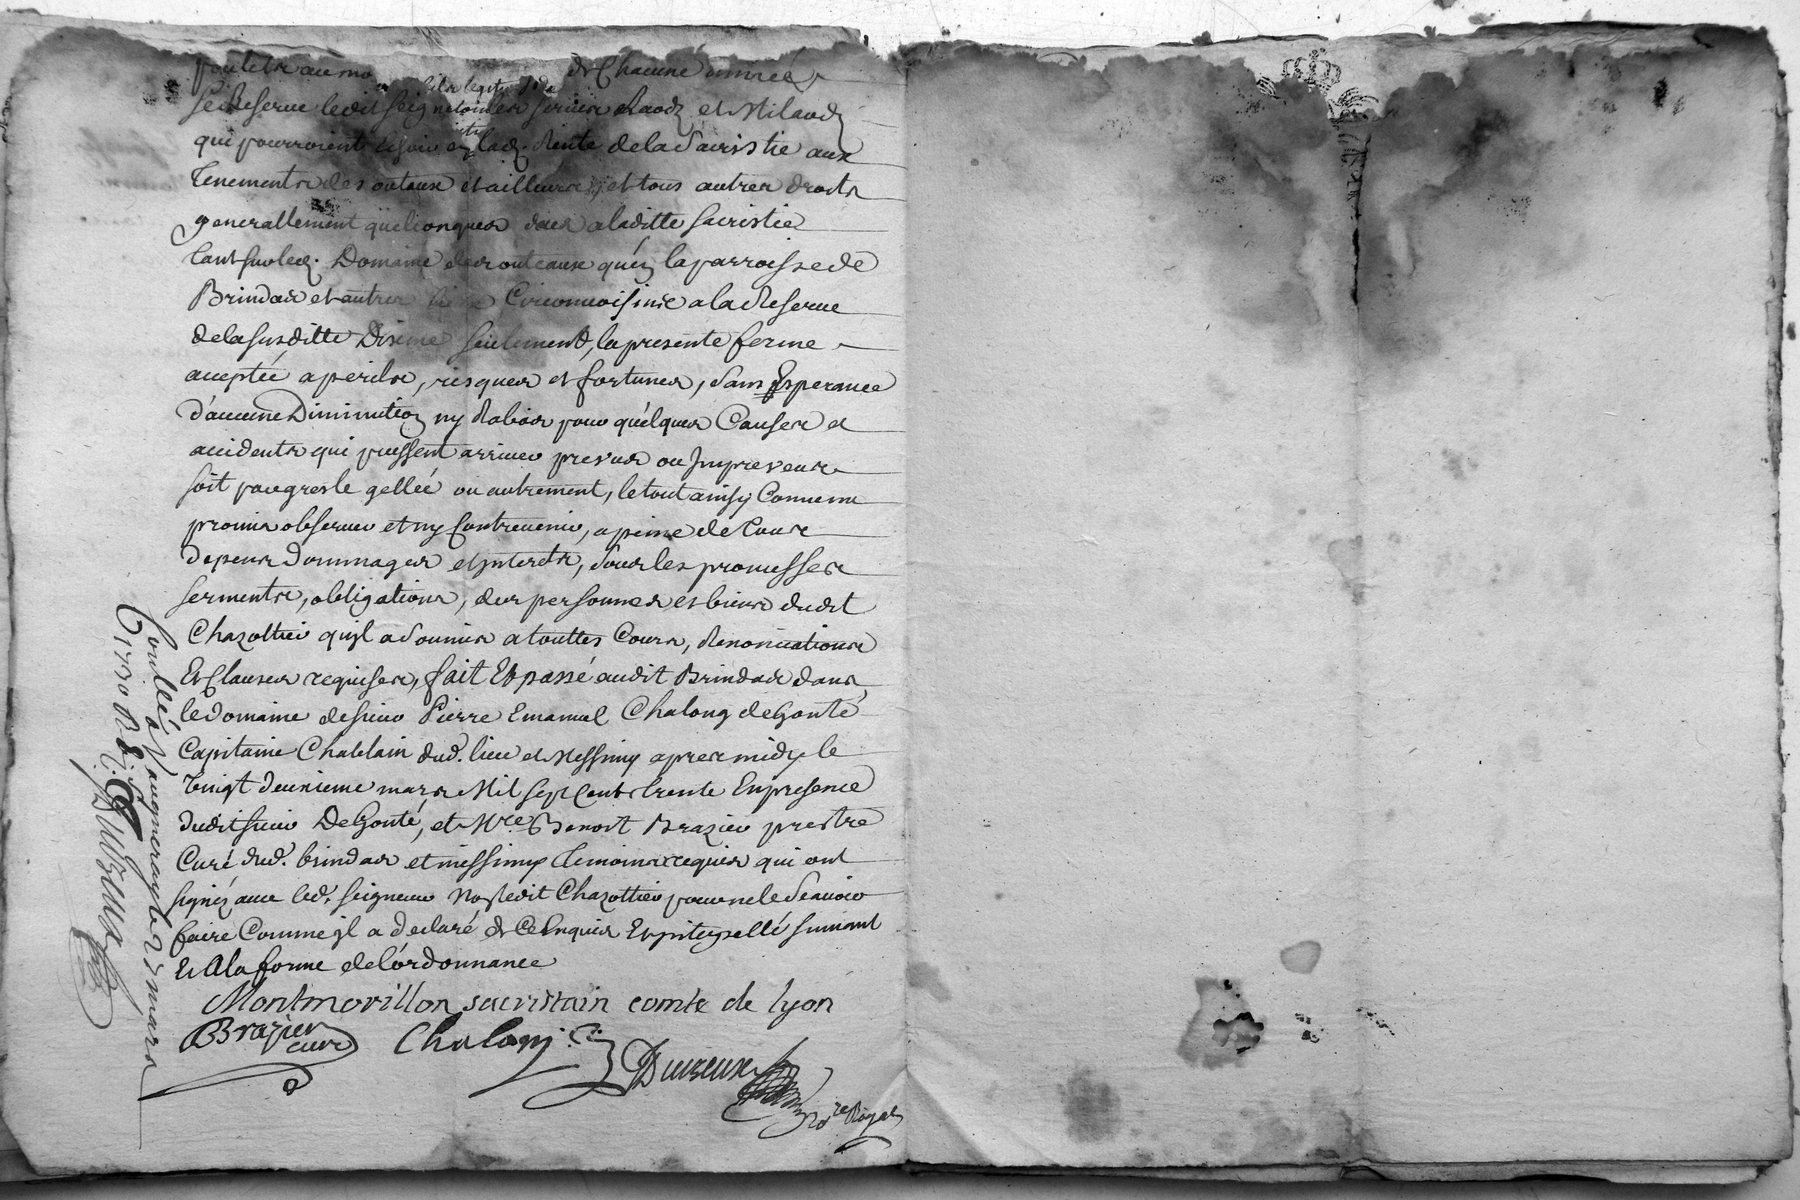 de Chacune année
se Reserve ledit seigneur
qui pourroient la de. Rente de la Sacristie aux
Tenements des outeaux et ailleurs, et tous autres droits
generallement quelconques deus a laditte sacristie
tant sur led. Domaine des outeaux qu'en la parroisse de
Brindas et autres Circonvoisine a la Reserve
de la susditte Disme seulement, la presente ferme
acceptée a perils, risques et fortunes, sans Esperance
d'aucune Diminution ny Rabais pour quelques Causes et
accidents qui pussent arriver prevus ou Imprevus
soit par gresle gellée ou autrement, le tout ainsy Convenu
promis observer et ny Contrevenir, a peine de tous
depens dommages et interets, sous les promesses
serments, obligations, des personnes et biens dudit
Chazottier qu'il a soumis a touttes Cours, Renonciations
Et Clauses requises, fait Et passé audit Brindas dans
le domaine de sieur Pierre Emanuel Chalong de Gonté
Capitaine Chatelain dud. lieu et Messimy apres midy le
vingt deuxieme mars Mil sept Cent trente En presence
dudit sieur De Gonté, et Mre Benoit Brazier prestre
Curé dud. brindas et messimy temoins requis qui ont
signéz avec led. seigneur Non ledit Chazottier pour ne le Sçavoir
faire Comme il a declaré de Ce Enquis Et interpellé suivant
Et A la forme de l'ordonnance
Montmorillon sacristain comte de lyon
Brazier
curé
Chalong
Duiseux
Nore Royal
Controllé a Vaugneray le mars
1730
Duiseux